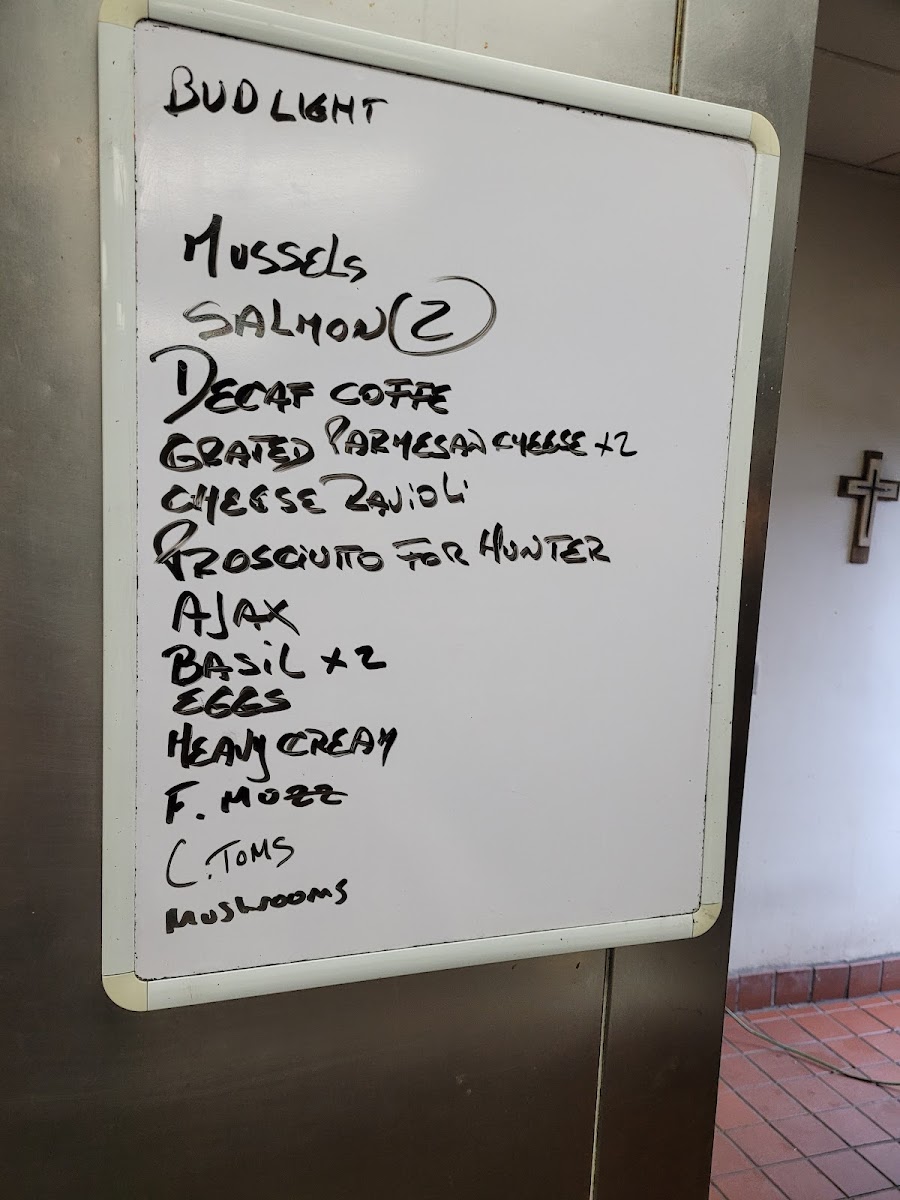 BUD LIGHT
MUSSELS
SALMON (2)
DECAF COFFE
GRATED PARMESAN CHEESE x2
CHEESE RAVIOLI
PROSCIUTTO FOR HUNTER
AJAX
BASIL x2
EGGS
HEAVY CREAM
F. MOZZ
C. TOMS
MUSHROOMS